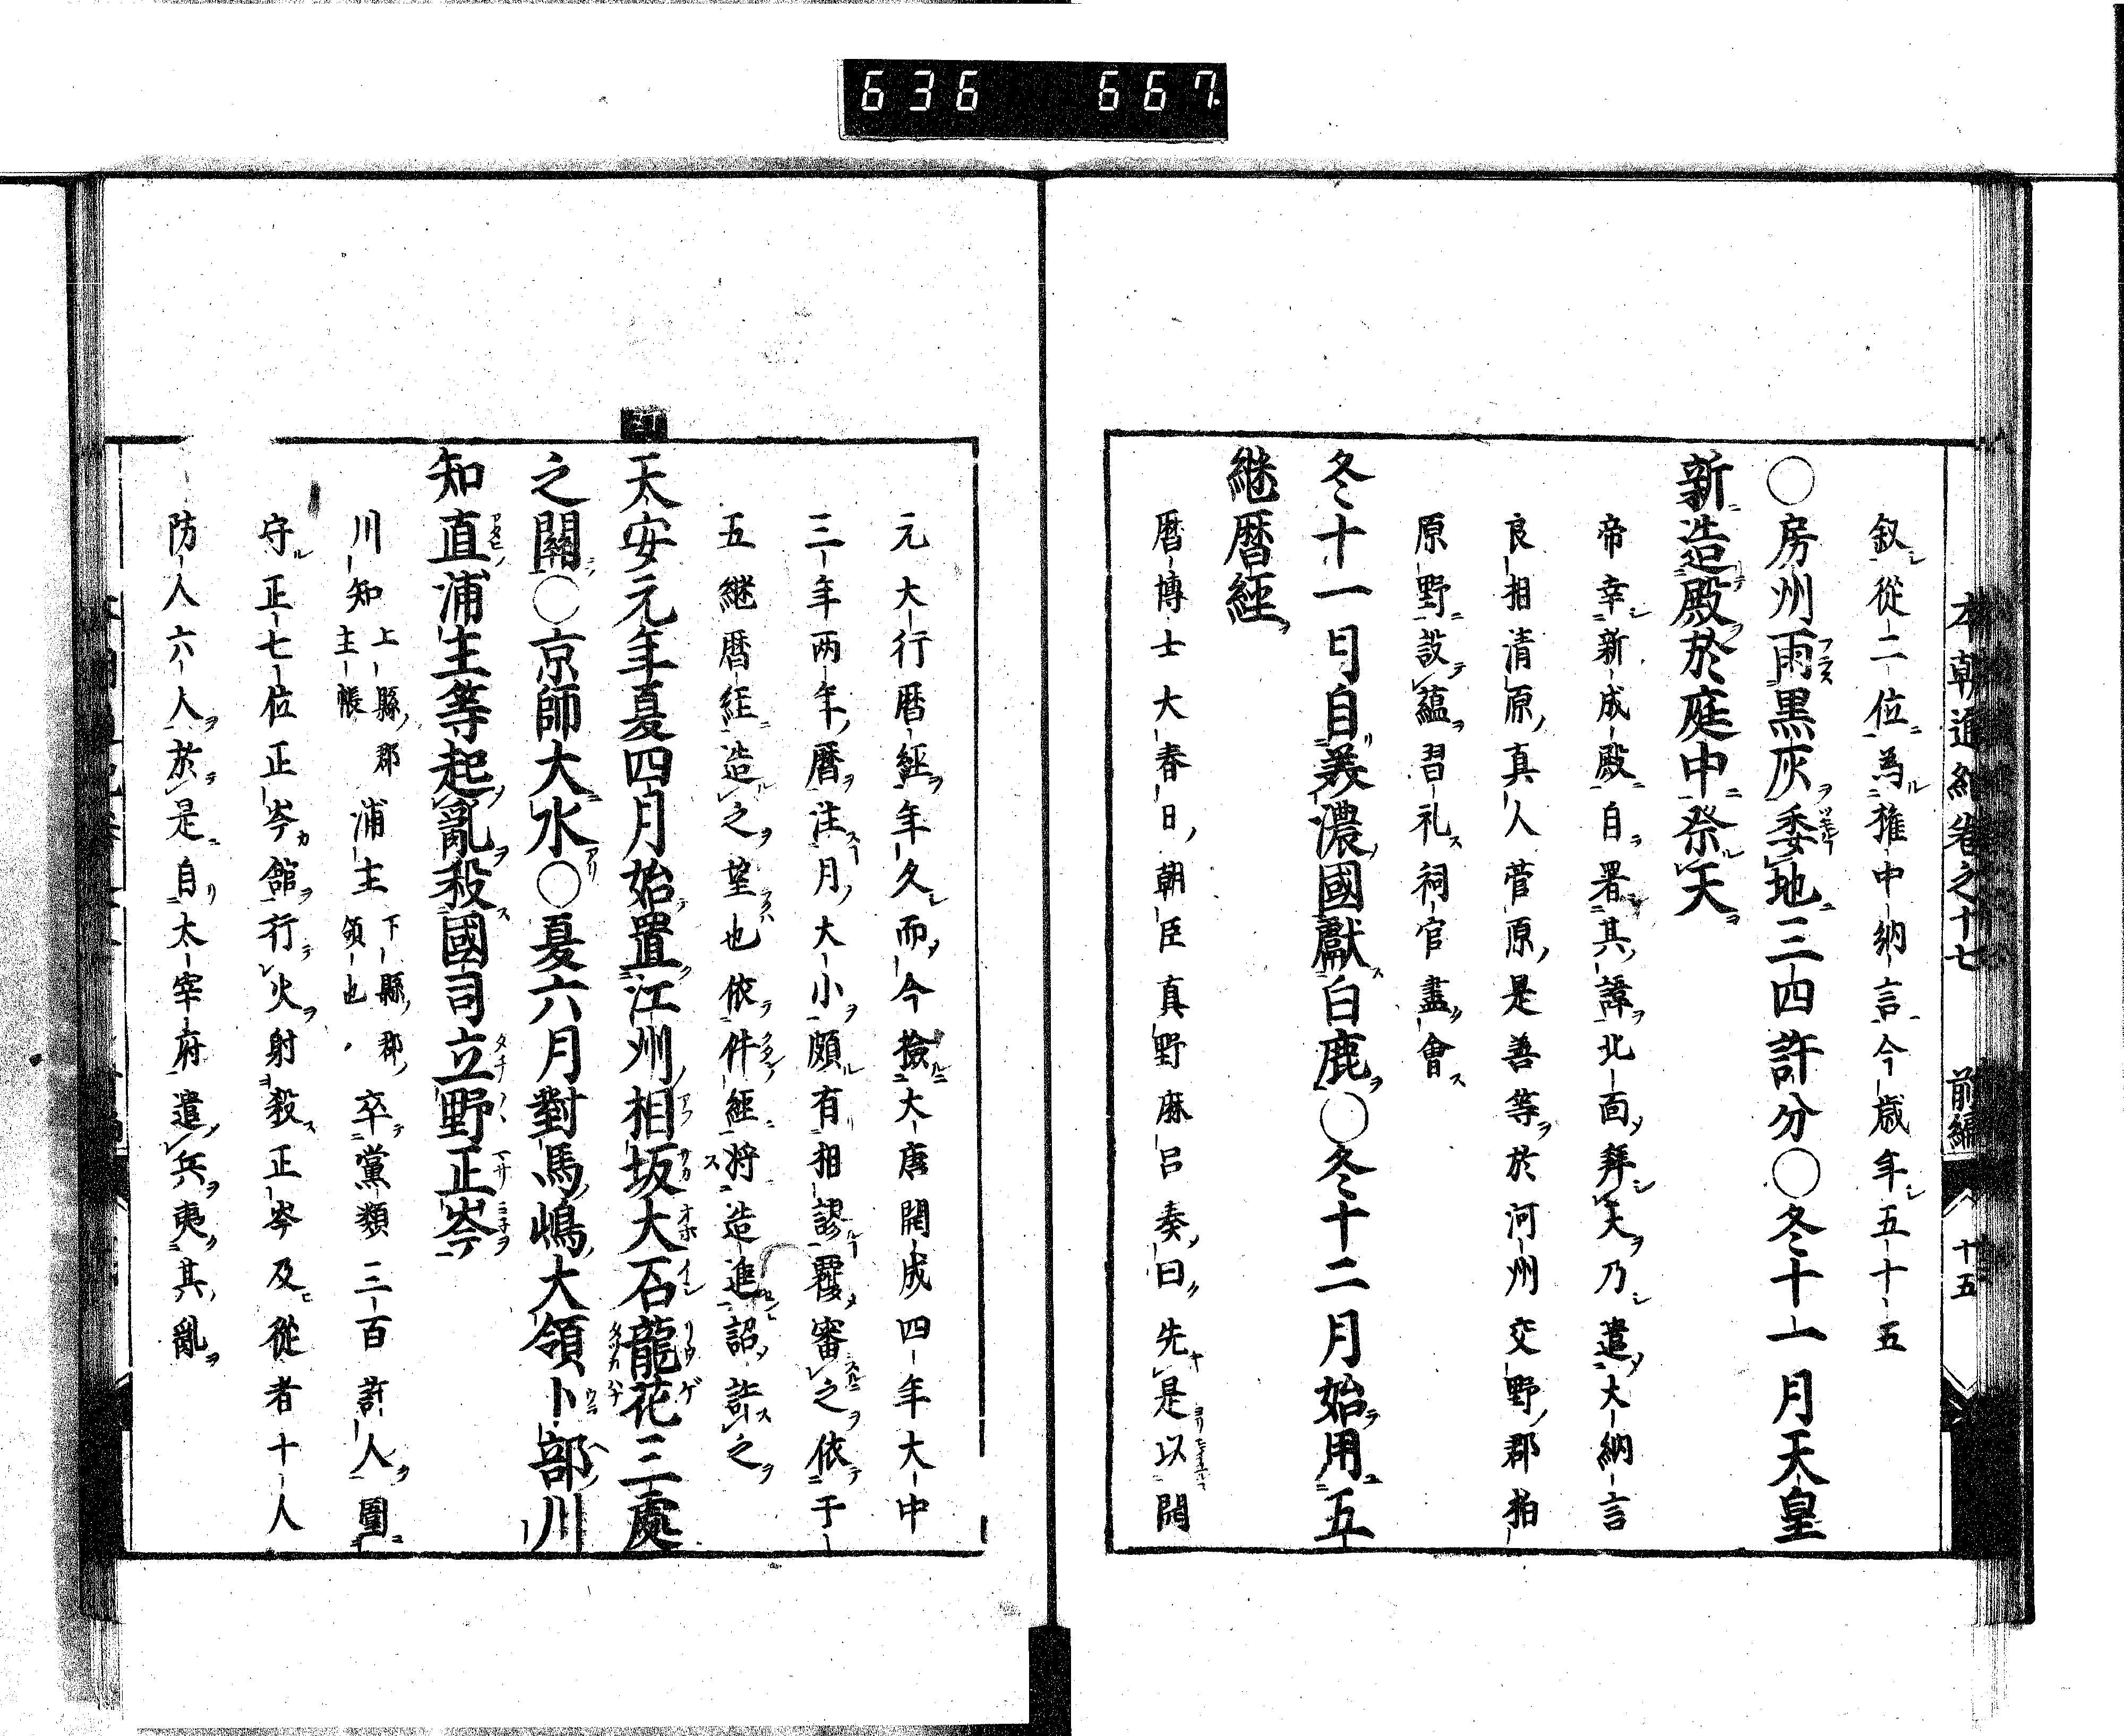 636 667
本朝通紀卷之十七 前編 十五
叙從二位為權中納言今歳年五十五
○房州雨黒灰委地三四許分○冬十一月天皇
新造殿於庭中祭天
帝幸新成殿自署其諱北面拜天乃遣大納言
良相清原真人菅原是善等於河州交野郡柏
原野設蕝習礼祠官盡會
冬十一月自美濃國獻白鹿○冬十二月始用五
継暦經
暦博士大春日朝臣真野麻呂奏曰先是以開
元大行暦經年久而今撿大唐開成四年大中
三年两年暦注月大小頗有相謬覆審之依于
五継暦經造之望也依件經将造進詔許之
天安元年夏四月始置江州相坂大石龍花三處
之關○京師大水○夏六月對馬嶋大領卜部川
知直浦主等起亂殺國司立野正岑
川知上縣郡主帳浦主下縣郡領也卒黨類三百許人圍
守正七位正岑館行火射殺正岑及從者十人
防人六人於是自太宰府遣兵夷其亂